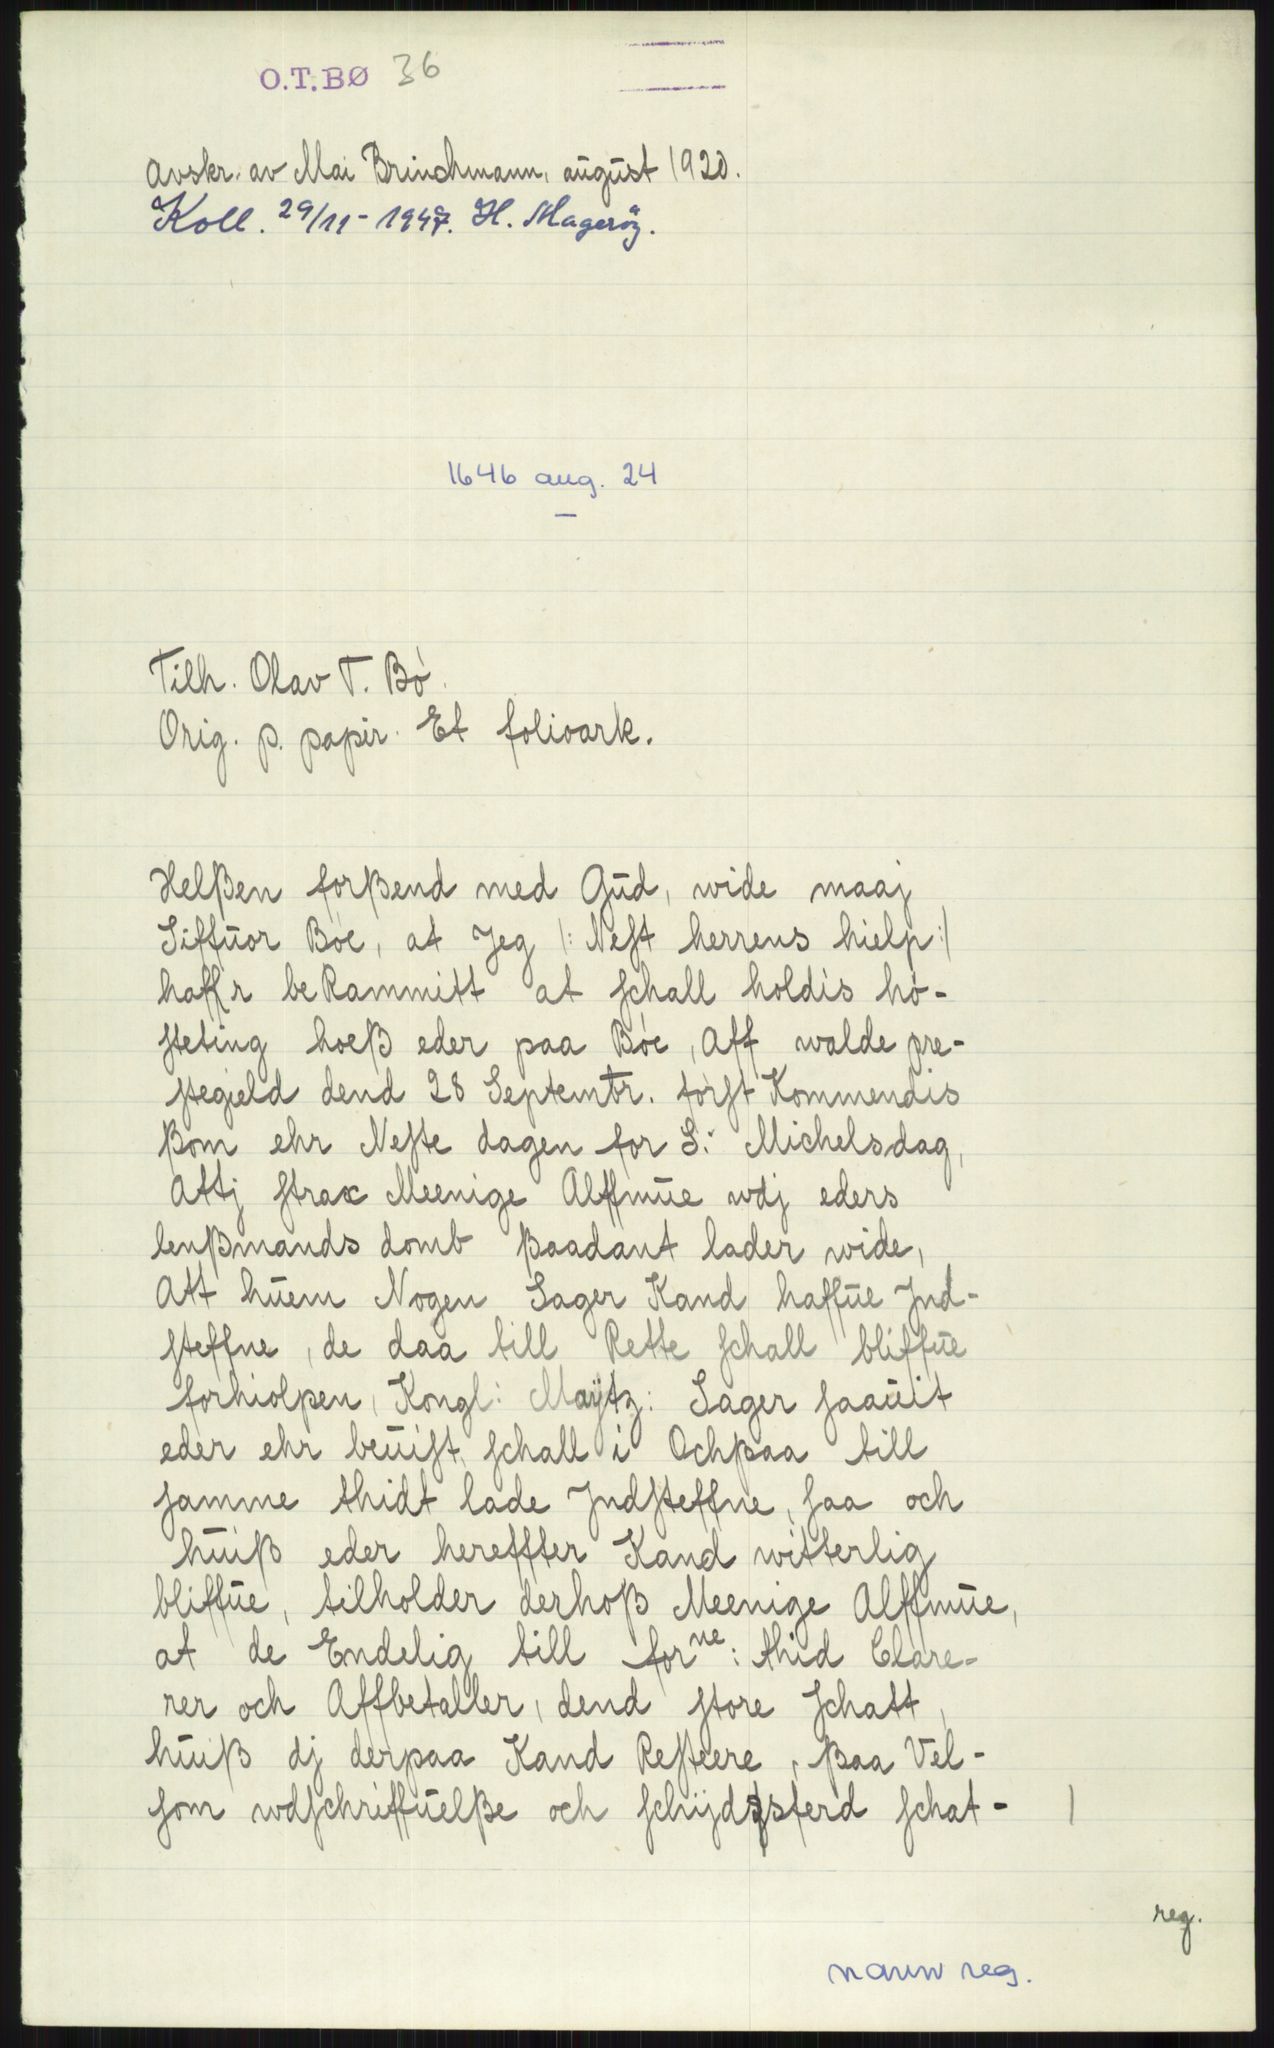 O.T.BØ 36
Avskr. av Mai Brinchmann, august 1920.
Koll. 29/11-1947. H. Magerøy.
1646 aug. 24
Tilh. Olav T. Bø.
Orig. p. papir. Et folioark.
Helßen forßend med Gud, wide maaj
Siffuor Böe, at Jeg /: Neſt herrens hielp :/
haffr beRammitt at ſchall holdis hö-
ſteting hoeß eder paa Böe, Aff walde pre-
ſtegield dend 28 Septembr. förſt Kommendis
ßom ehr Neſte dagen for S: Michelsdag,
Attj ſtrax Meenige Allmue wdj eders
lenßmands domb ßaadant lader wide,
Att huem Nogen Sager Kand haffue Jnd-
ſteffne, de daa till Rette ſchall bliffue
forhiolpen, Kongl: Maÿtz: Sager ſaauit
eder ehr beuiſt, ſchall i Ochßaa till
ſamme thidt lade Jndſteffne, ſaa och
huiß eder hereffter Kand witterlig
bliffue, tilholder derhoß Meenige Allmue,
at de Endelig till forne: thid Clare-
rer och Affbetaller, dend ſtore ſchatt,
huiß dj derpaa Kand Reſteere, ßaa Vel-
ſom wdſchriffuelße och ſchijdzferd ſchat- /
reg.
navn reg.